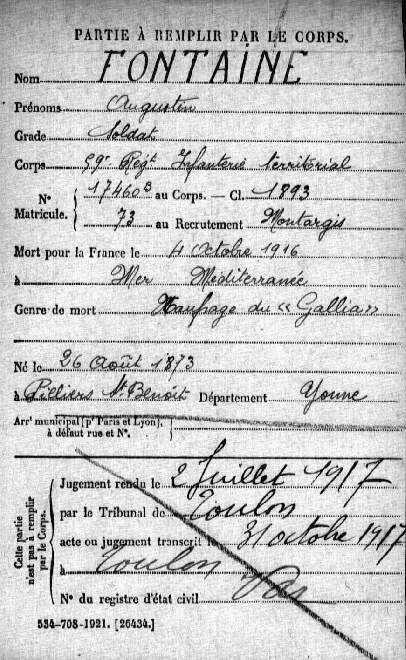 PARTIE À REMPLIR PAR LE CORPS.
Nom FONTAINE
Prénoms Augustin
Grade Soldat
Corps 59e Régt Infanterie territorial
N° Matricule. 17460B au Corps. — Cl. 1893
73 au Recrutement Montargis
Mort pour la France le 4 Octobre 1916
à Mer Méditerranée
Genre de mort Naufrage du « Gallia »
Né le 26 Août 1873
à St Benoit Département Yonne
Arrt municipal (pr Paris et Lyon),
à défaut rue et N°.
Cette partie n'est pas à remplir par le Corps.
Jugement rendu le 2 Juillet 1917
par le Tribunal de Toulon
acte ou jugement transcrit le 31 octobre 1917
à Toulon Var
N° du registre d'état civil
534-708-1921. [26434.]